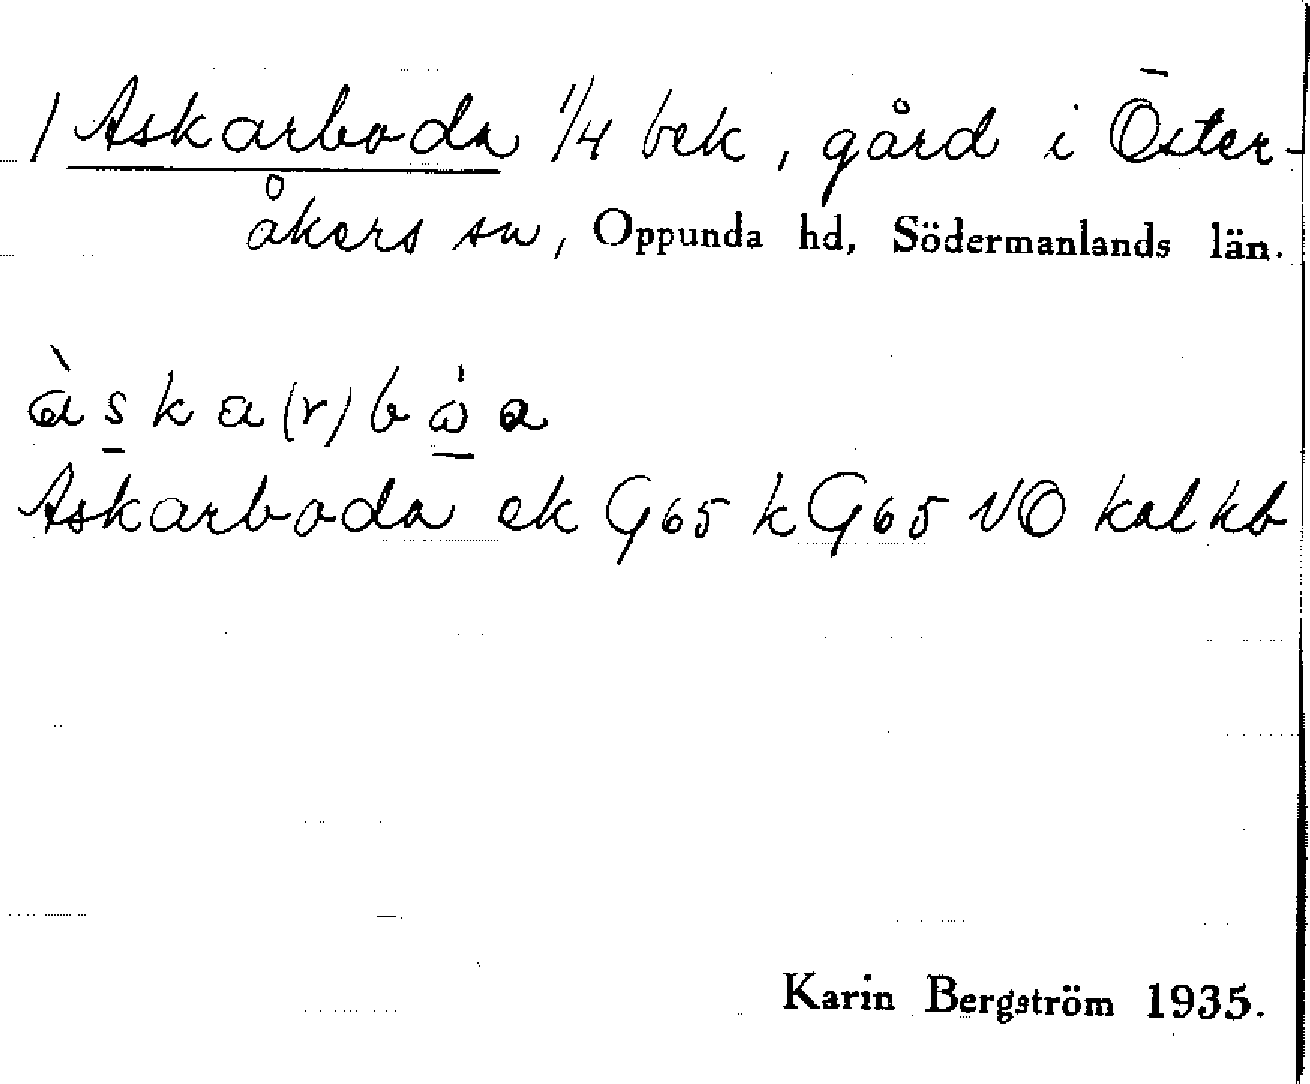 1 Askarboda 1/4 bek, gård i Öster-
åkers sn, Oppunda hd, Södermanlands län.
àska(r)bω̇a
Askarboda ek G65 k G65 NO kal kb
Karin Bergström 1935.